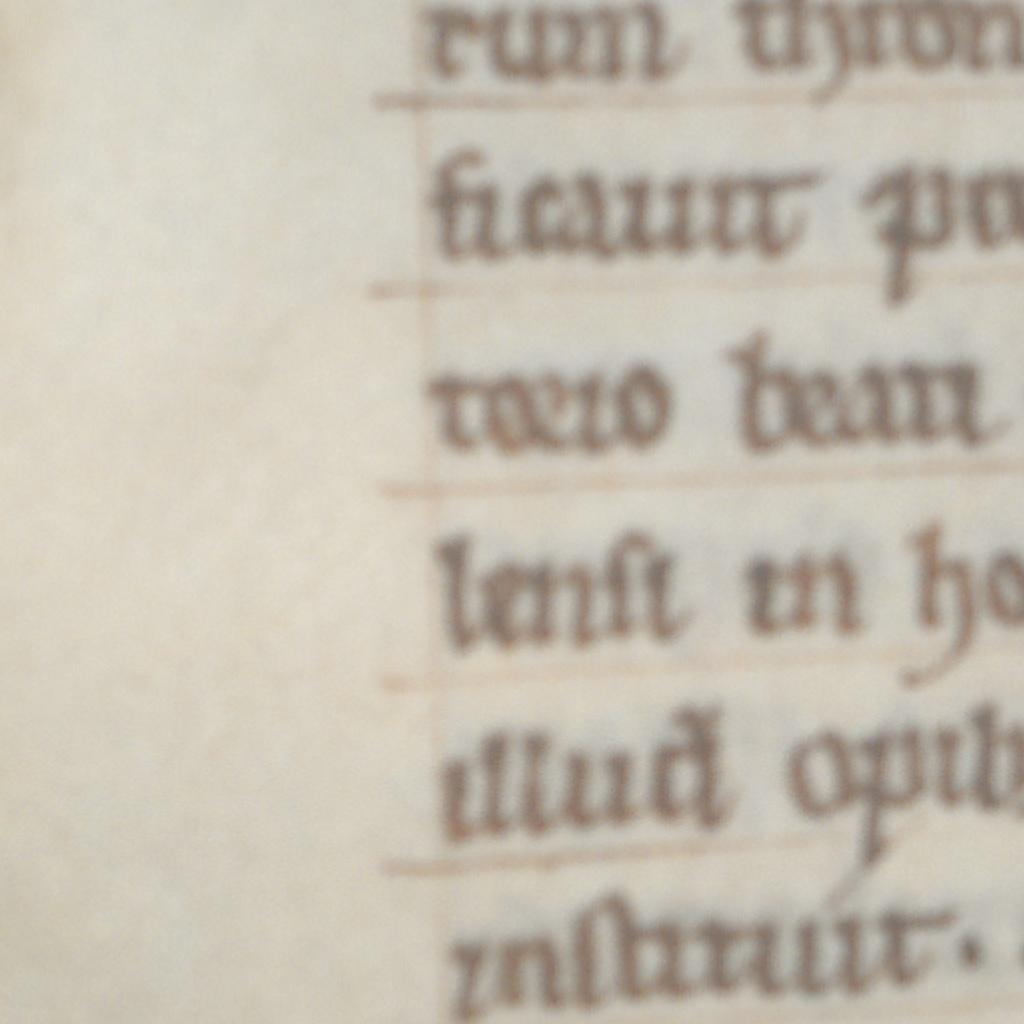 rum thron
ficauit pa
rocio beati
lensi in ho
illud opib
instituit.